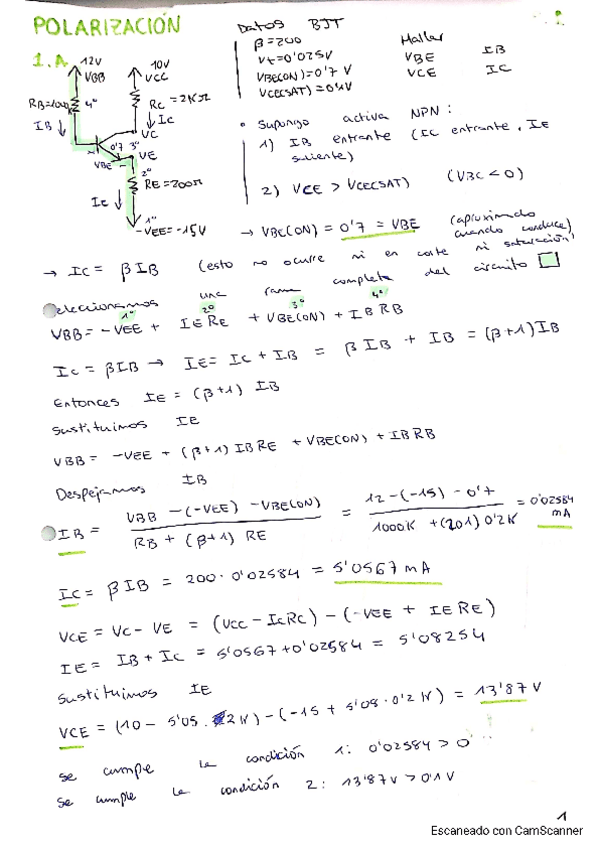 POLARIZACIÓN
Datos BJT
β=200
Vt=0'025V
VBE(ON)=0'7 V
VCE(SAT)=0'1V
Hallar
VBE IB
VCE IC
1.A
12V
VBB
10V
VCC
RB=1000K
4º
RC = 2KΩ
IC
IB
VC
0'7 3º
VBE
VE
2º
RE=200Ω
IE
1º
-VEE=-15V
• Supongo activa NPN:
1) IB entrante (IC entrante, IE
saliente)
2) VCE > VCE(SAT) (VBC < 0)
→ VBE(ON) = 0'7 = VBE (aproximado
cuando conduce)
→ IC = βIB (esto no ocurre ni en corte ni saturación)
Seleccionamos una rama completa del circuito
1º 2º 3º 4º
VBB = -VEE + IERE + VBE(ON) + IBRB
IC = βIB → IE = IC + IB = βIB + IB = (β+1)IB
Entonces IE = (β+1) IB
sustituimos IE
VBB = -VEE + (β+1) IBRE + VBE(ON) + IBRB
Despejamos IB
IB = VBB -(-VEE) -VBE(ON) / RB + (β+1) RE = 12-(-15) - 0'7 / 1000K +(201)0'2K = 0'02584 mA
IC = βIB = 200·0'02584 = 5'0567 mA
VCE = VC - VE = (VCC - ICRC) - (-VEE + IERE)
IE = IB + IC = 5'0567+0'02584 = 5'08254
sustituimos IE
VCE = (10 - 5'05 · 2K) - (-15 + 5'08·0'2K) = 13'87 V
se cumple la condición 1: 0'02584 > 0
se cumple la condición 2: 13'87V > 0'1V
1
Escaneado con CamScanner